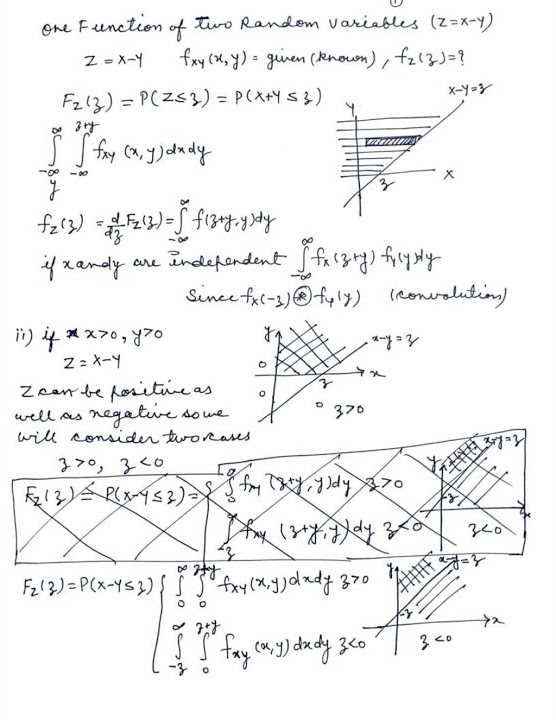 ①
One Function of two Random variables (z=x-y)
Z = X-Y   fxy(x,y) = given (known), fz(z)=?
Fz(z) = P(Z≤z) = P(X+Y≤z)
∫_{-∞}^{∞} ∫_{-∞}^{z+y} fxy (x,y) dx dy
y
Y
x-y=z
z
X
fz(z) = d/dz Fz(z) = ∫_{-∞}^{∞} f(z+y,y)dy
if x and y are independent ∫_{-∞}^{∞} fx(z+y) fy(y)dy
Since fx(-z) ⊛ fy(y)   (convolution)
ii) if x>0, y>0
Z = X-Y
Z can be positive as
well as negative so we
will consider two cases
z>0, z<0
y
x-y=z
0
z
x
0
0
z>0
Fz(z) = P(x-y≤z) = ∫_{0}^{∞} fxy (z+y,y)dy z>0
∫_{-z}^{∞} fxy (z+y,y)dy z<0
y
x-y=z
-z
z<0
Fz(z)=P(x-y≤z) { ∫_{0}^{∞} ∫_{0}^{z+y} fxy(x,y)dxdy z>0
∫_{-z}^{∞} ∫_{0}^{z+y} fxy(x,y)dxdy z<0
y
x-y=z
-z
x
z<0